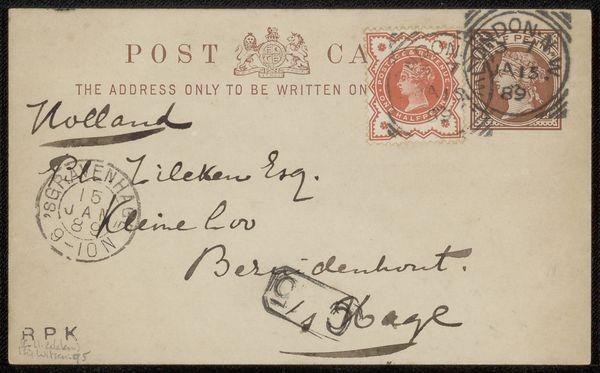 POST CA
THE ADDRESS ONLY TO BE WRITTEN ON
POSTAGE & REVENUE
ONE HALFPENNY
LONDON
JA 15
89
Holland
Ph. Zilcken Esq.
Kleine Loo
Bezuidenhout.
's Hage
'S GRAVENHAGE
15
JAN
89
9-10N
RPK